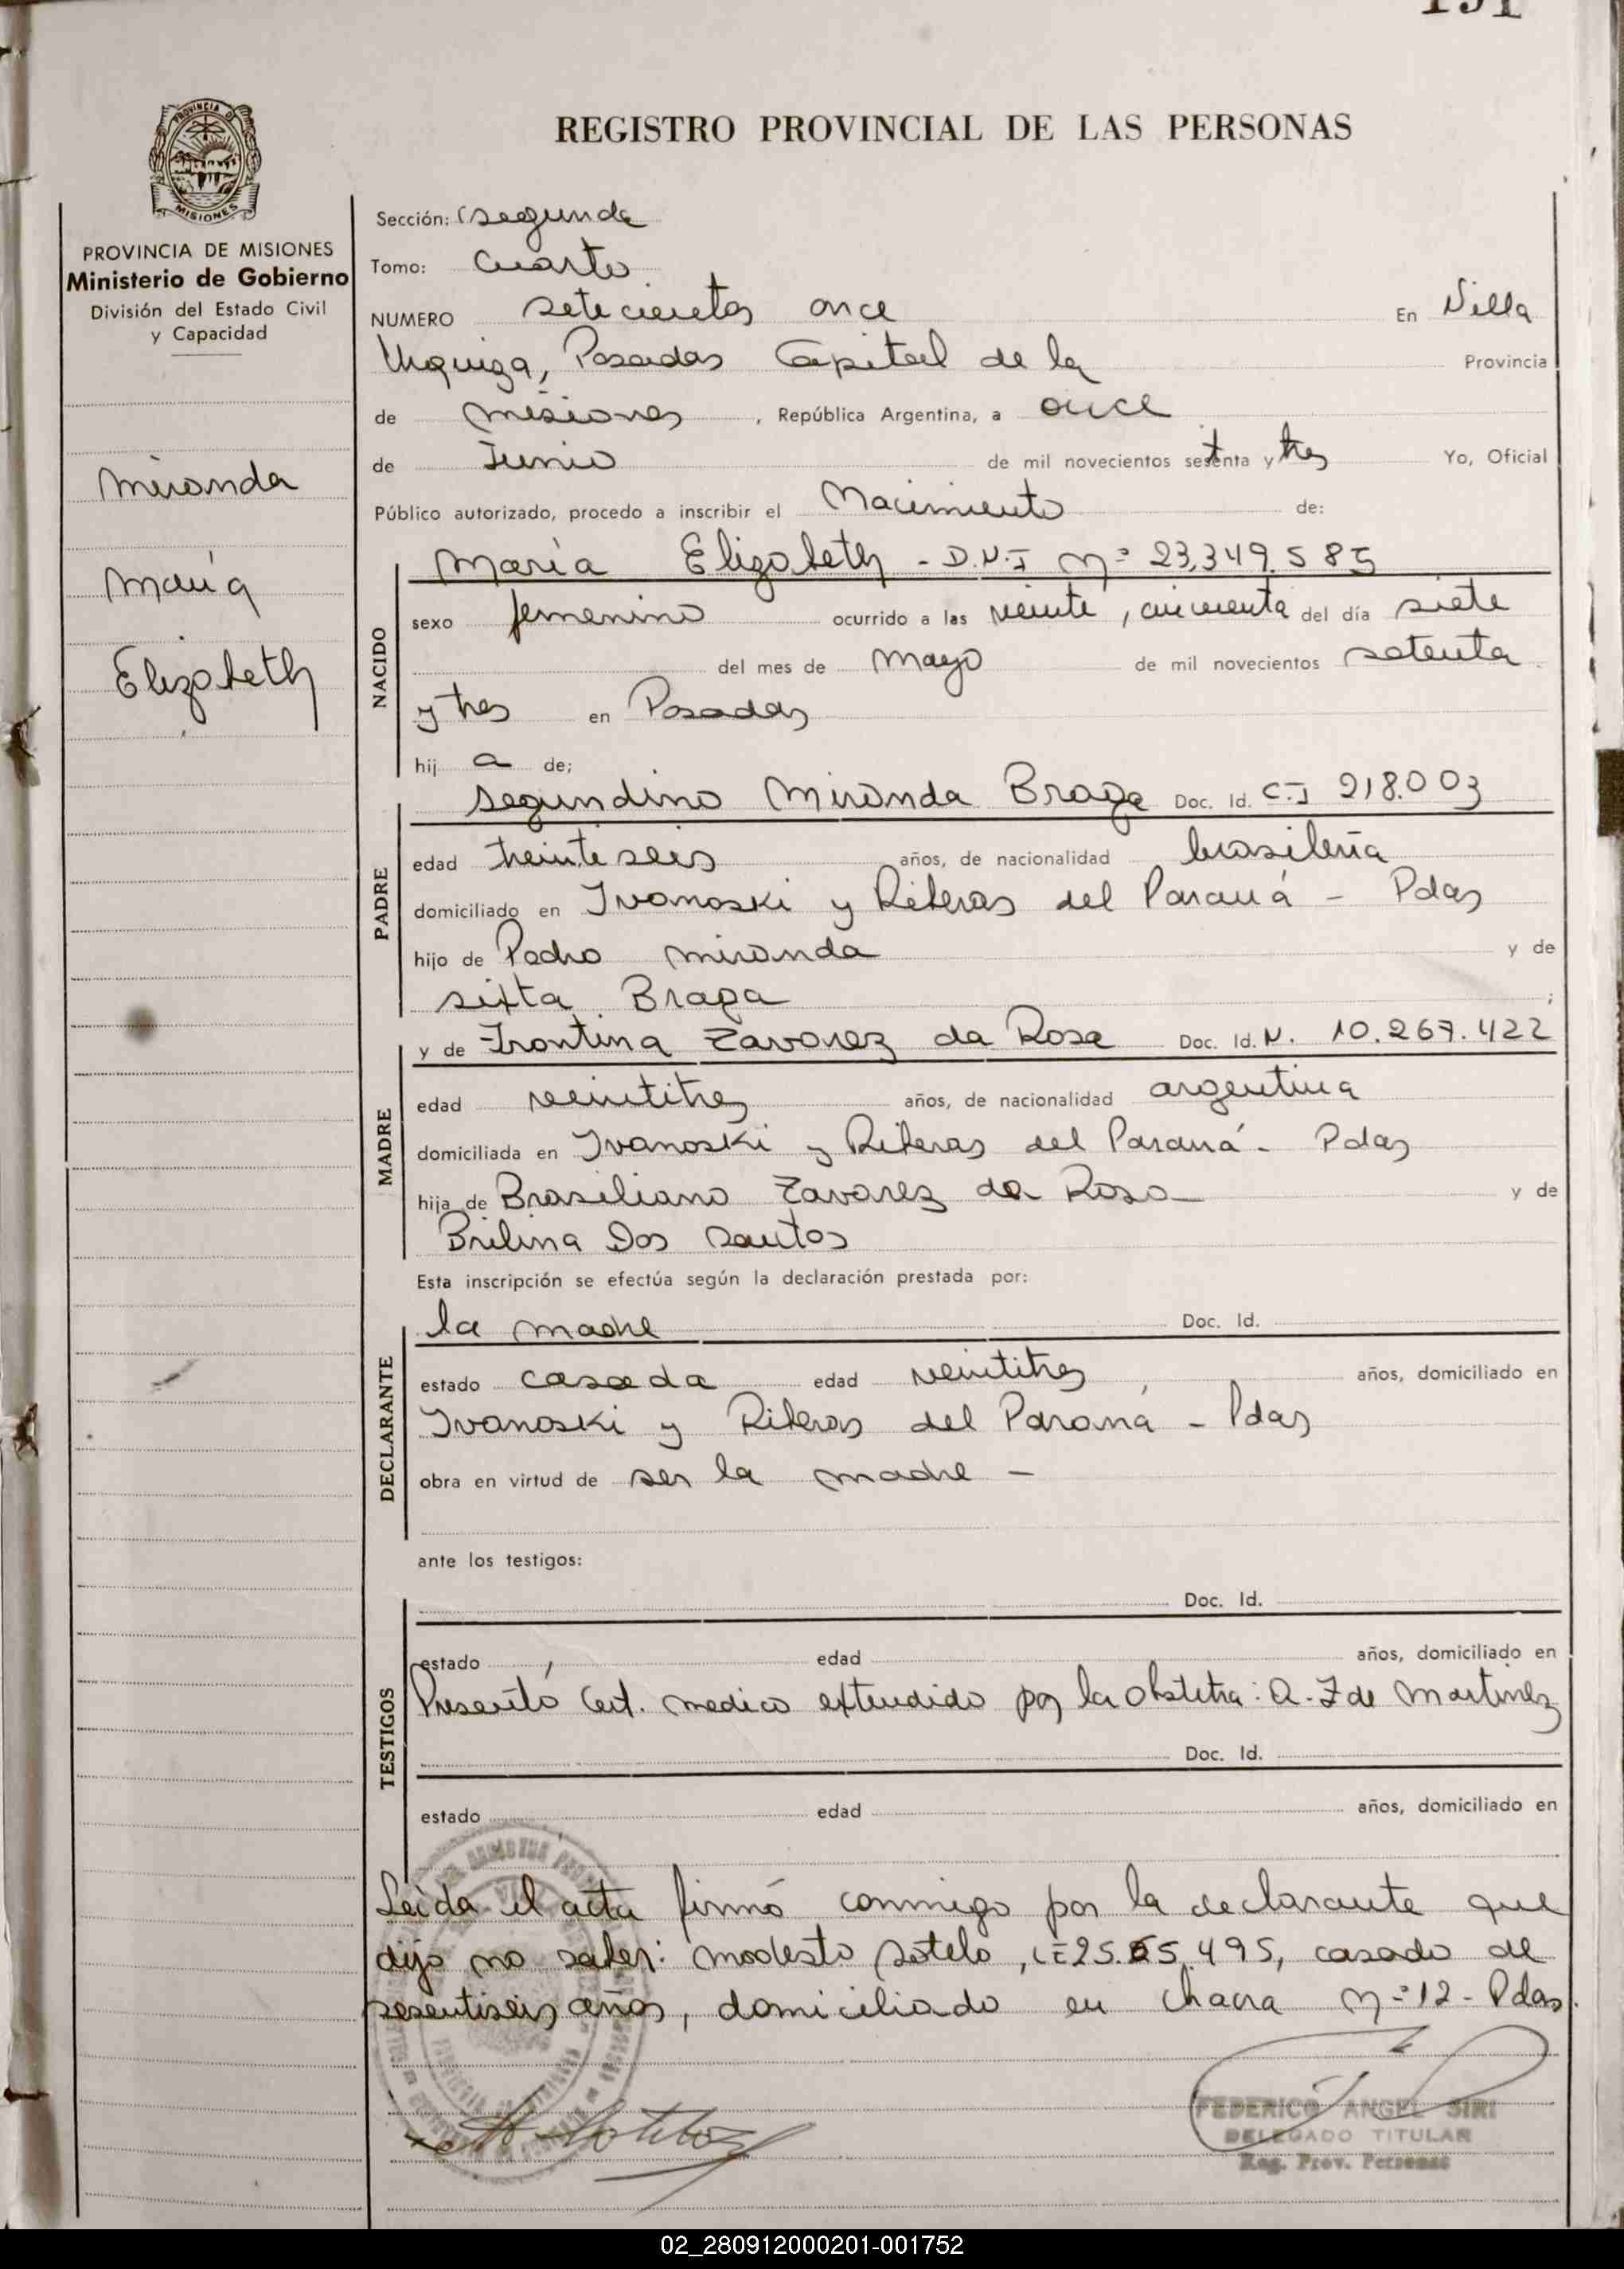 191
REGISTRO PROVINCIAL DE LAS PERSONAS
PROVINCIA DE MISIONES
PROVINCIA DE MISIONES
Ministerio de Gobierno
División del Estado Civil
y Capacidad
Miranda
María
Elizabeth
Sección: segunda
Tomo: Cuarto
NUMERO setecientos once En Villa
Urquiza, Posadas Capital de la Provincia
de Misiones, República Argentina, a once
de Junio de mil novecientos setenta y tres Yo, Oficial
Público autorizado, procedo a inscribir el Nacimiento de:
NACIDO
María Elizabeth - D.N.I nº 23,349.585
sexo femenino ocurrido a las veinte, cincuenta del día siete
del mes de Mayo de mil novecientos setenta
y tres en Posadas
hij a de;
PADRE
segundino Miranda Braga Doc. Id. C.I 218.003
edad treinta seis años, de nacionalidad brasileña
domiciliado en Ivanoski y Riberas del Paraná - Pdas
hijo de Pedro Miranda y de
sixta Braga ;
MADRE
y de Frontina Zavarez da Rosa Doc. Id. N. 10.267.422
edad veintitres años, de nacionalidad argentina
domiciliada en Ivanoski y Riberas del Paraná - Pdas
hija de Brasiliano Zavarez da Rosa y de
Brilina Dos Santos
Esta inscripción se efectúa según la declaración prestada por:
DECLARANTE
la madre Doc. Id.
estado casada edad veintitres años, domiciliado en
Ivanoski y Riberas del Paraná - Pdas
obra en virtud de ser la madre -
ante los testigos:
TESTIGOS
Doc. Id.
estado edad años, domiciliado en
Presentó Cert. medico extendido por la obstetra: A. Z de Martinez
Doc. Id.
estado edad años, domiciliado en
Leída el acta firmó conmigo por la declarante que
dijo no saber: Modesto Sotelo, LE 25.65.495, casado de
sesentiseis años, domiciliado en chacra nº 12 - Pdas.
FEDERICO ANGEL SIRI
DELEGADO TITULAR
Reg. Prov. Personas
02_280912000201-001752